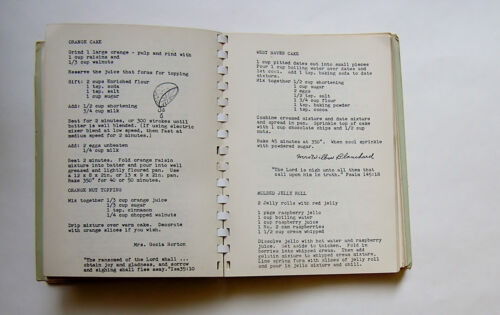 ORANGE CAKE
Grind 1 large orange - pulp and rind with
1 cup raisins and
1/3 cup walnuts
Reserve the juice that forms for topping
Sift: 2 cups Enriched flour
1 tsp. soda
1 tsp. salt
1 cup sugar
Add: 1/2 cup shortening
3/4 cup milk
Beat for 2 minutes, or 300 strokes until
batter is well blended. (If using electric
mixer blend at low speed, then fast at
medium speed for 2 minutes).
Add: 2 eggs
1/4 cup milk
Beat 2 minutes. Fold orange raisin
mixture into batter and pour into well
greased and lightly floured pan. Use
a 12 x 8 x 2in. or 13 x 9 x 2in. pan.
Bake 350° for 40 or 50 minutes.
ORANGE NUT TOPPING
Mix together 1/3 cup orange juice
1/3 cup sugar
1 tsp. cinnamon
1/4 cup chopped walnuts
Drip mixture over warm cake. Decorate
with orange slices if you wish.
Mrs. Norton
"The ransomed of the Lord shall ...
obtain joy and gladness, and sorrow
and sighing shall flee away." Isa 35:10
WEST HAVEN CAKE
1 cup pitted dates cut into small pieces
Pour 1 cup boiling water over dates and
let cool. add 1 tsp. baking soda to date
mixture.
Mix together 1/2 cup shortening
1 cup sugar
2 eggs
1/2 tsp. salt
1 3/4 cup flour
1 tsp. baking powder
1 tsp. cocoa
Combine creamed mixture and date mixture
and spread in pan. Sprinkle top of cake
with 1 cup chocolate chips and 1/2 cup
nuts.
Bake 45 minutes at 350°. When cool sprinkle
with powdered sugar.
Blanchard
"The Lord is nigh unto all them that
call upon him in truth." Psalm 145:18
MOLDED JELLY ROLL
2 Jelly rolls with red jelly
1 pkge raspberry jello
1 cup boiling water
1 cup raspberry juice
1 No. 2 can raspberries
1 1/2 cup cream whipped
Dissolve jello with hot water and raspberry
juice. Set aside to thicken. Fold in
berries into whipped cream. Then add
gelatin mixture to whipped cream mixture.
Line spring form with slices of jelly roll
and pour in jello mixture and chill.